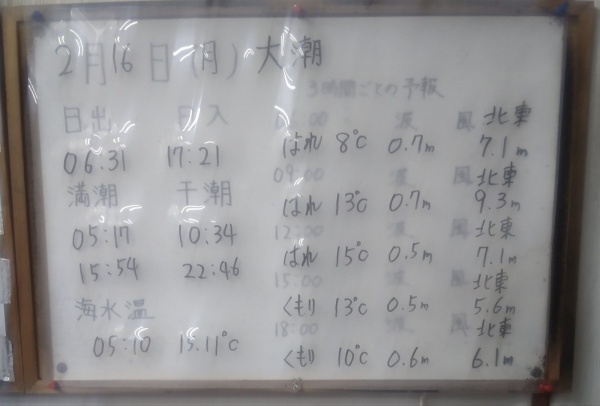 2月16日(月) 大潮
3時間ごとの予報
日出 日入
06:31 17:21
満潮 干潮
05:17 10:34
15:54 22:46
海水温
05:10 15.11℃
06:00 波 風 北東
はれ 8℃ 0.7m 7.1m
09:00 波 風 北東
はれ 13℃ 0.7m 9.3m
12:00 波 風 北東
はれ 15℃ 0.5m 7.1m
15:00 波 風 北東
くもり 13℃ 0.5m 5.6m
18:00 波 風 北東
くもり 10℃ 0.6m 6.1m